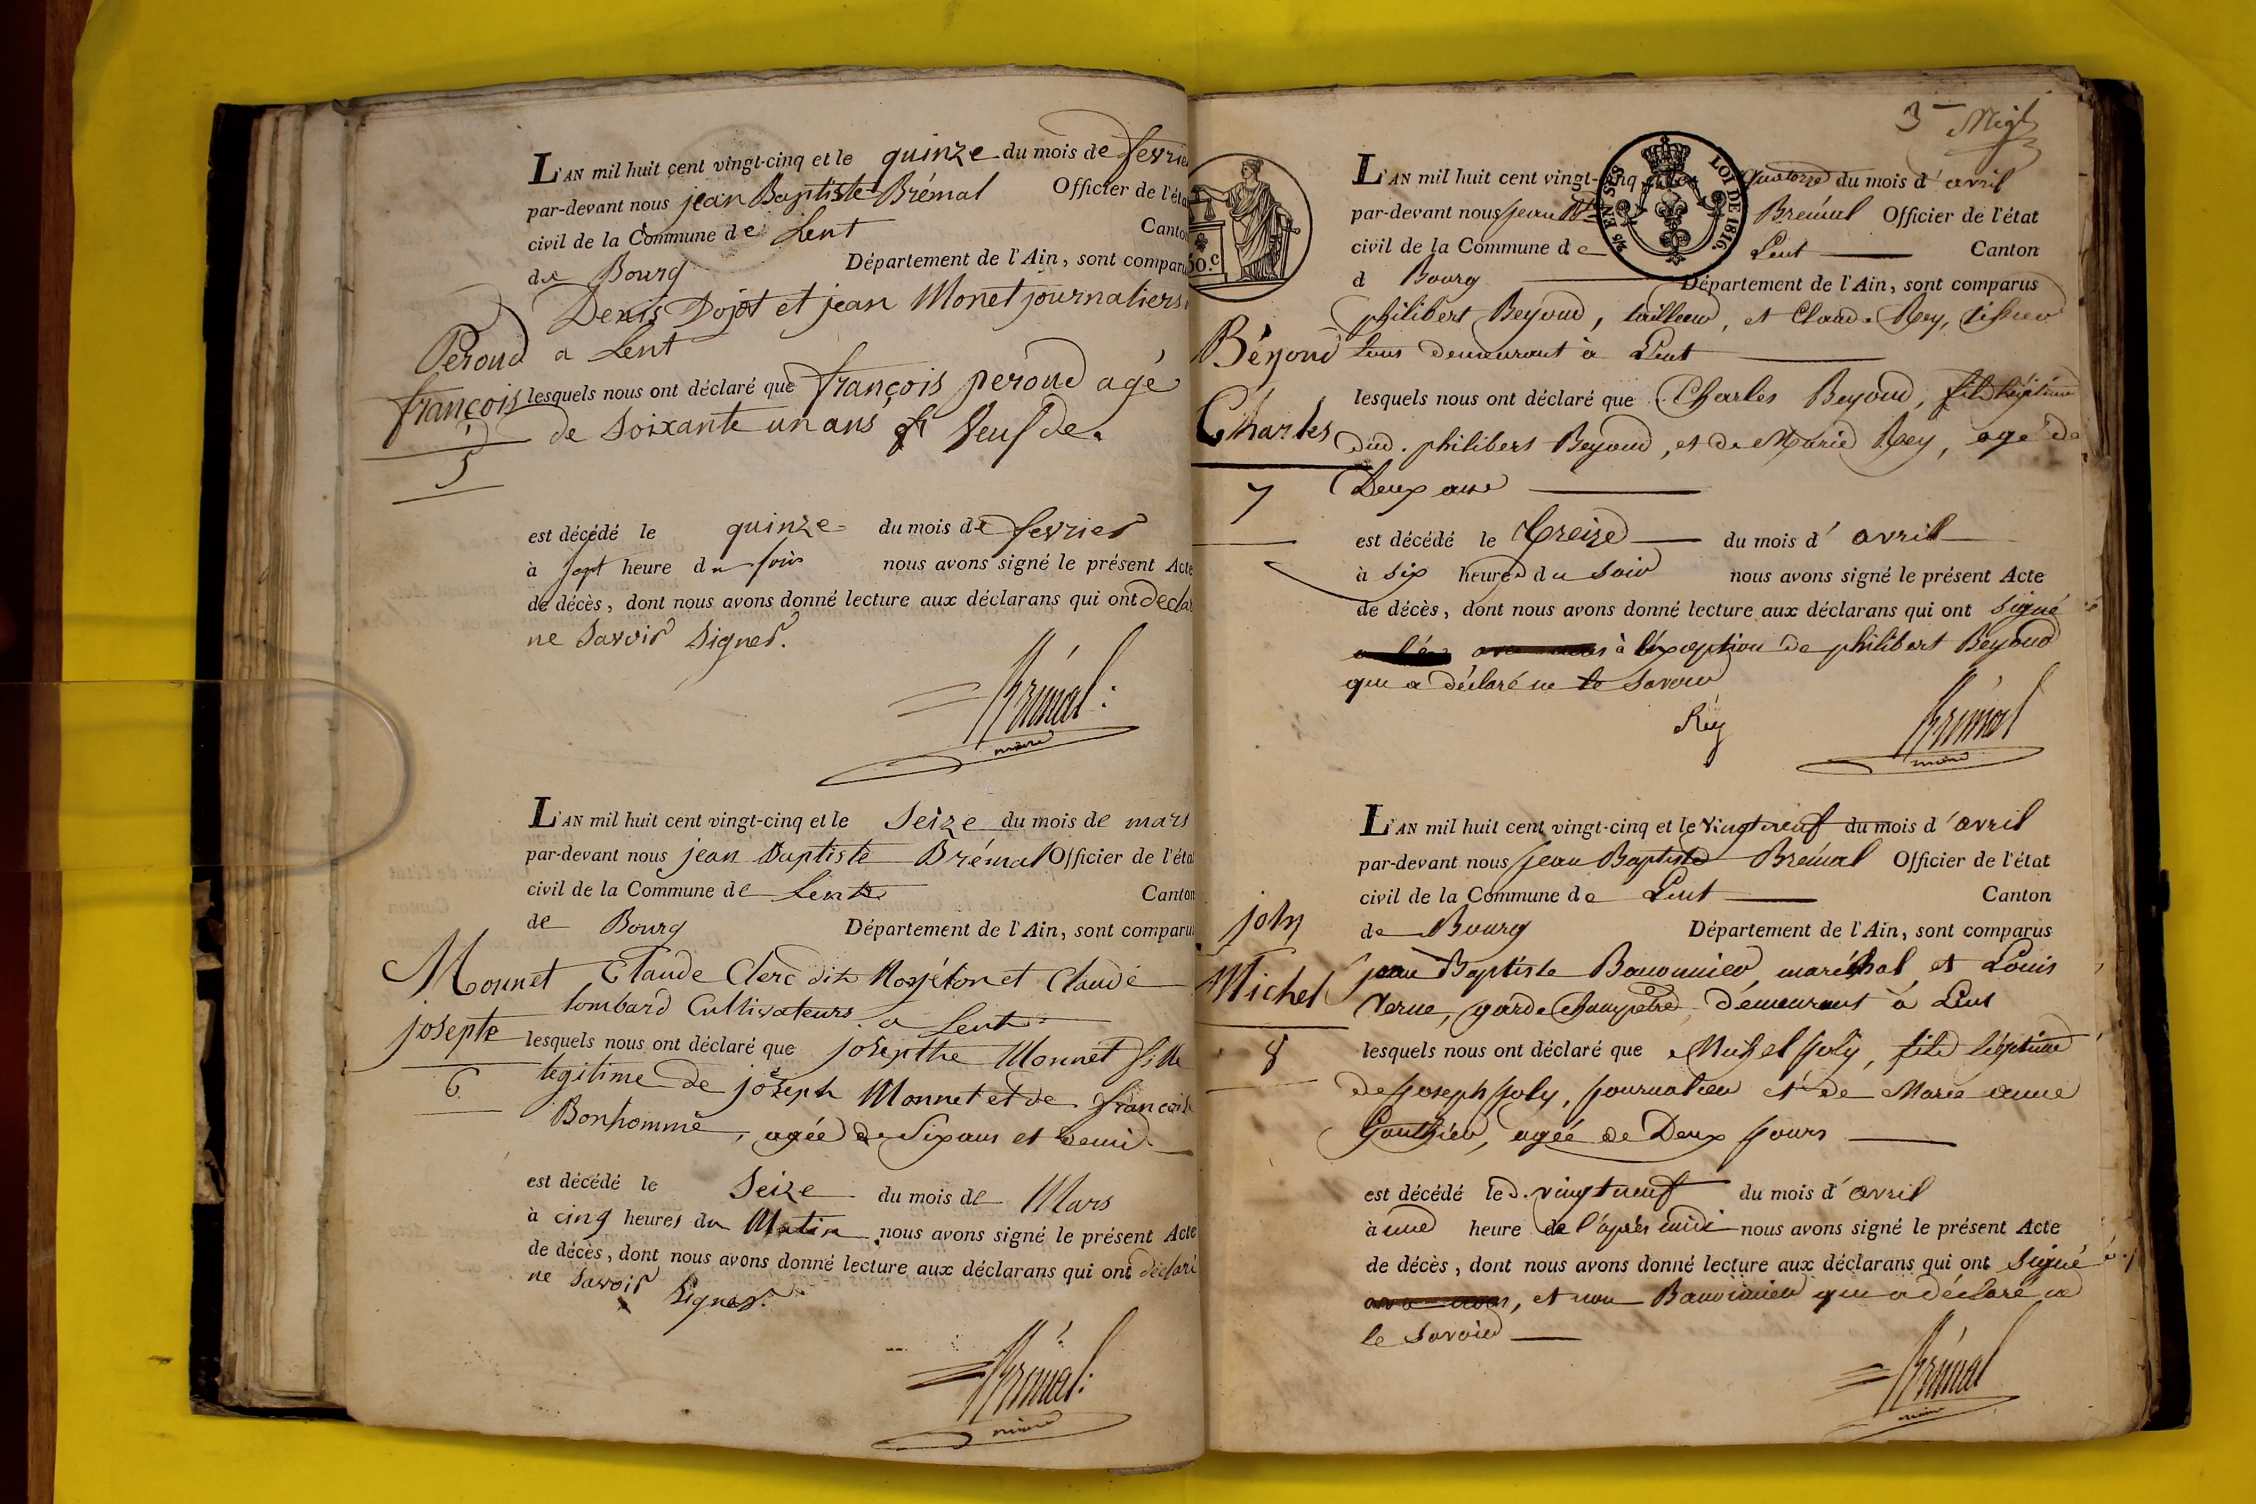 L'AN mil huit cent vingt-cinq et le quinze du mois de fevrier
par-devant nous jean Baptiste Brémal Officier de l'état
civil de la Commune de Lent Canton
de Bourg Département de l'Ain, sont comparus
Denis Dojot et jean Monet journaliers
a Lent
Peroud
françois
5
lesquels nous ont déclaré que françois peroud agé
de soixante un ans et Veuf de.
est décédé le quinze du mois de fevrier
à sept heure du soir nous avons signé le présent Acte
de décès, dont nous avons donné lecture aux déclarans qui ont declaré
ne savoir signer.
Brémal
maire
L'AN mil huit cent vingt-cinq et le Seize du mois de mars
par-devant nous jean Baptiste Brémal Officier de l'état
civil de la Commune de Lent Canton
de Bourg Département de l'Ain, sont comparus
Monnet
josephte
6
Claude Clerc dit et Claude
lombard Cultivateurs a Lent
lesquels nous ont déclaré que josepthe Monnet fille
legitime de joseph Monnet et de françoise
Bonhomme, agée de Six ans et demi
est décédé le Seize du mois de Mars
à cinq heures du Matin nous avons signé le présent Acte
de décès, dont nous avons donné lecture aux déclarans qui ont déclaré
ne savoir Signer.
Brémal
maire
3
50.c
EN SUS
LOI DE 1816.
L'AN mil huit cent vingt-cinq et le quatorze du mois d'avril
par-devant nous jean Bte Brémal Officier de l'état
civil de la Commune de Lent Canton
d Bourg Département de l'Ain, sont comparus
philibert Beyoud, tailleur, et Claude Rey, tissier
tous demeurant à Lent
Béyoud
Charles
7
lesquels nous ont déclaré que Charles Beyoud, fils légitime
dud. philibert Beyoud, et de Marie Rey, agé de
Deux ans
est décédé le treize du mois d'avril
à six heures du soir nous avons signé le présent Acte
de décès, dont nous avons donné lecture aux déclarans qui ont signé
à l'exception de philibert Beyoud
qui a déclaré ne le savoir
Rey
Brémal
maire
L'AN mil huit cent vingt-cinq et le vingt neuf du mois d'avril
par-devant nous jean Baptiste Brémal Officier de l'état
civil de la Commune de Lent Canton
de Bourg Département de l'Ain, sont comparus
joly
Michel
8
jean Baptiste maréchal, et Louis
Verne, garde champetre, demeurant à Lent
lesquels nous ont déclaré que Michel joly, fils légitime
de joseph joly, journalier et de Marie anne
Gouthier, agée de Deux jours
est décédé le vingt neuf du mois d'avril
à une heure de l'après midi nous avons signé le présent Acte
de décès, dont nous avons donné lecture aux déclarans qui ont signé
, et non qui a déclaré ne
le savoir
Brémal
maire